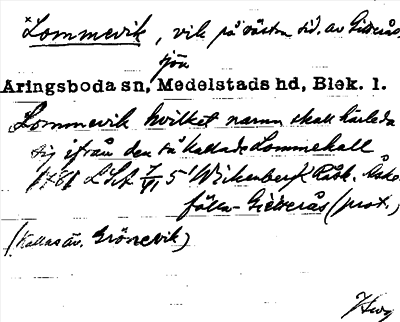 ×Lommevik, vik på västra sid. av Gieterås
sjön
Aringsboda sn, Medelstads hd, Blek. l.
Lommevik hvilket namn skall härleda
sig ifrån den så kallade Lommehall
1781 LSA 7/VI 5' Wickenberg
fälla - Gieterås (prot.)
(Kallas äv. Grönevik)